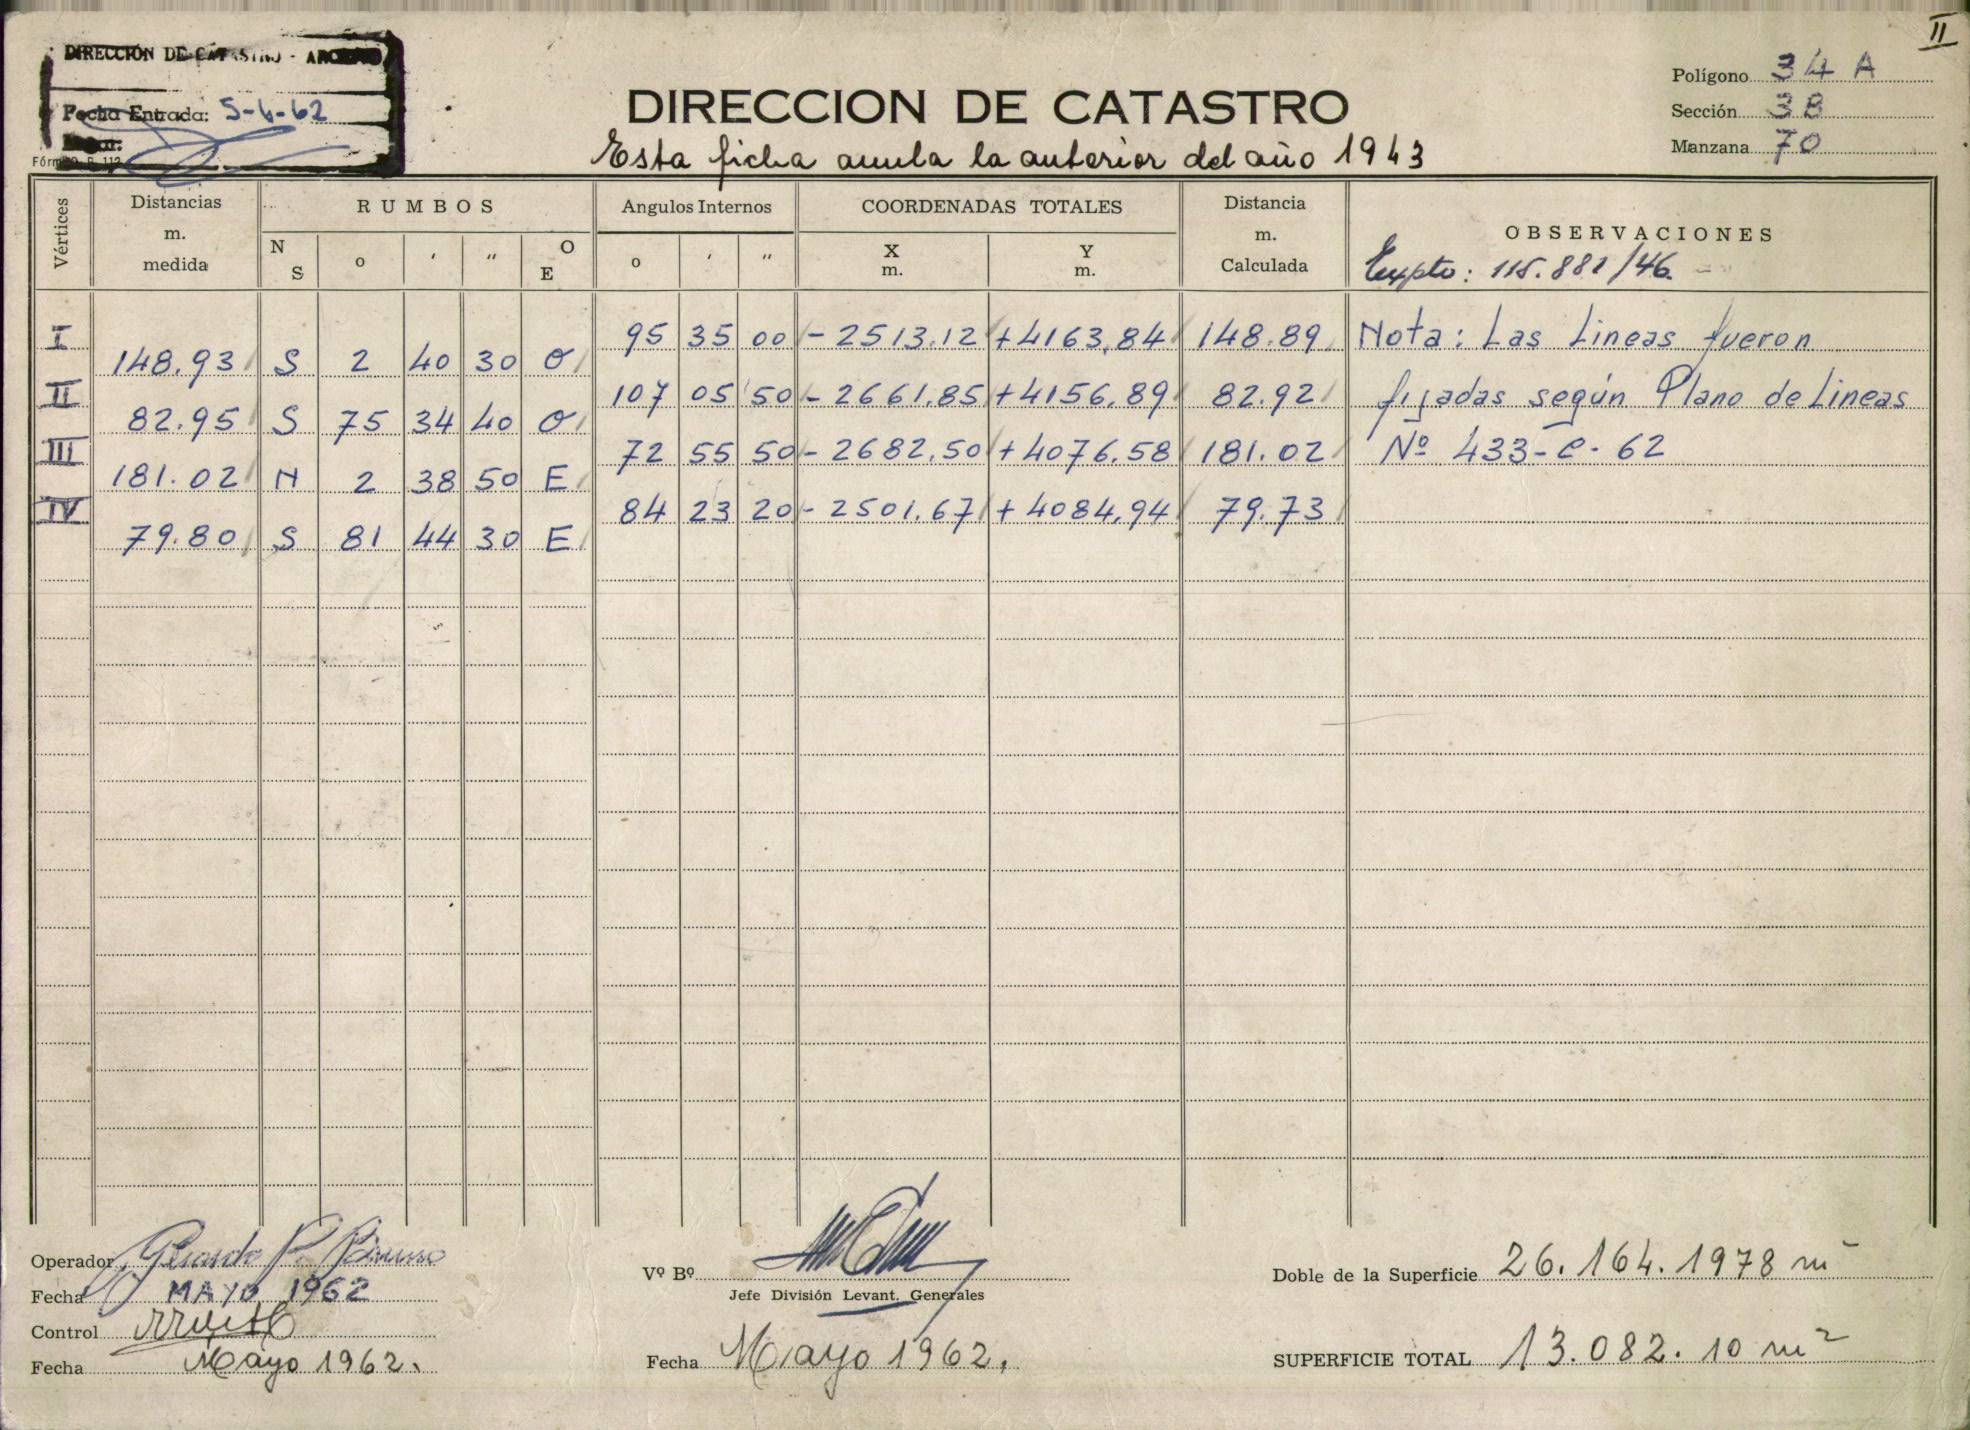 II
DIRECCIÓN DE CATASTRO - ARCHIVO
Fecha Entrada: 5-6-62
DIRECCION DE CATASTRO
Esta ficha anula la anterior del año 1943
Polígono 34 A
Sección 38
Manzana 70
Vértices
Distancias m. medida
RUMBOS
N S o ' " O E
Angulos Internos
o ' "
COORDENADAS TOTALES
X m. Y m.
Distancia m. Calculada
OBSERVACIONES
Expte: 115.881/46.
I 95 35 00 - 2513.12 +4163,84 148.89 Nota: Las Lineas fueron
148.93 S 2 40 30 O
II 107 05 50 - 2661.85 +4156.89 82.92 fijadas según Plano de Lineas
82.95 S 75 34 40 O
III 72 55 50 - 2682.50 +4076.58 181.02 Nº 433-C-62
181.02 N 2 38 50 E
IV 84 23 20 - 2501.67 +4084.94 79.73
79.80 S 81 44 30 E
Operador Gerardo P.
Fecha MAYO 1962
Control
Fecha Mayo 1962.
Vº Bº
Jefe División Levant. Generales
Fecha Mayo 1962.
Doble de la Superficie 26.164.1978 m
SUPERFICIE TOTAL 13.082.10 m²